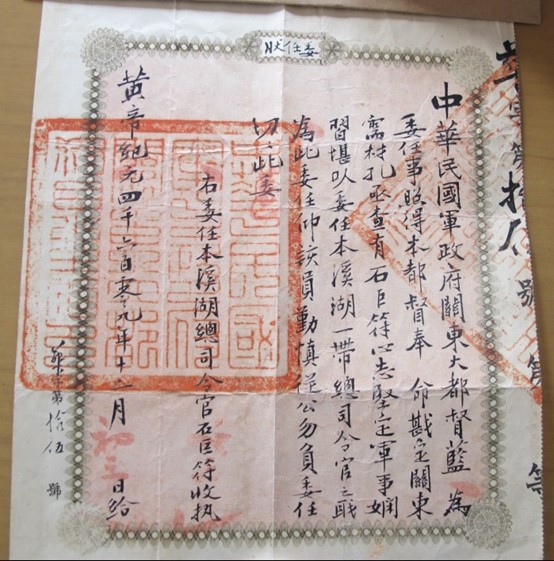 委任狀
中華民國軍政府關東大都督藍 為
委任事照得本都督奉 命戡定關東
需材孔亟查有石巨符心志堅定軍事嫻
習堪以委任本溪湖一帶總司令官之職
為此委任仰該員勤慎從公勿負委任
切切此委
右委任本溪湖總司令官石巨符收執
黃帝紀元四千六百零九年十二月 日給
第拾伍 號